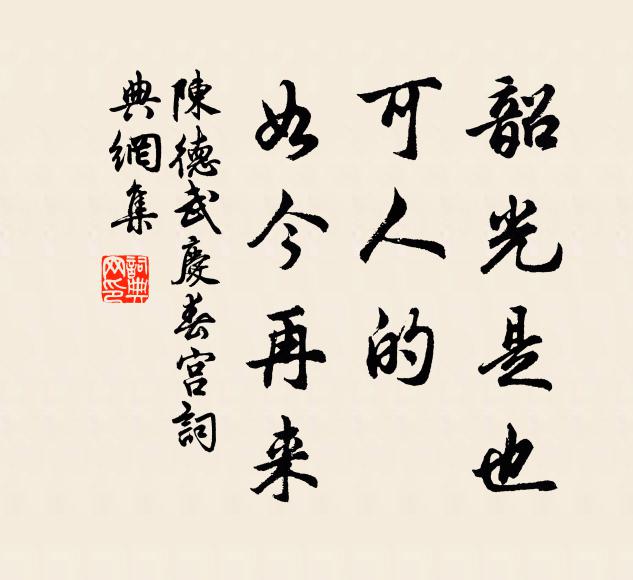 韶光是也
可人的
如今再来
陳德武慶春宮詞
典網集
詞典網印